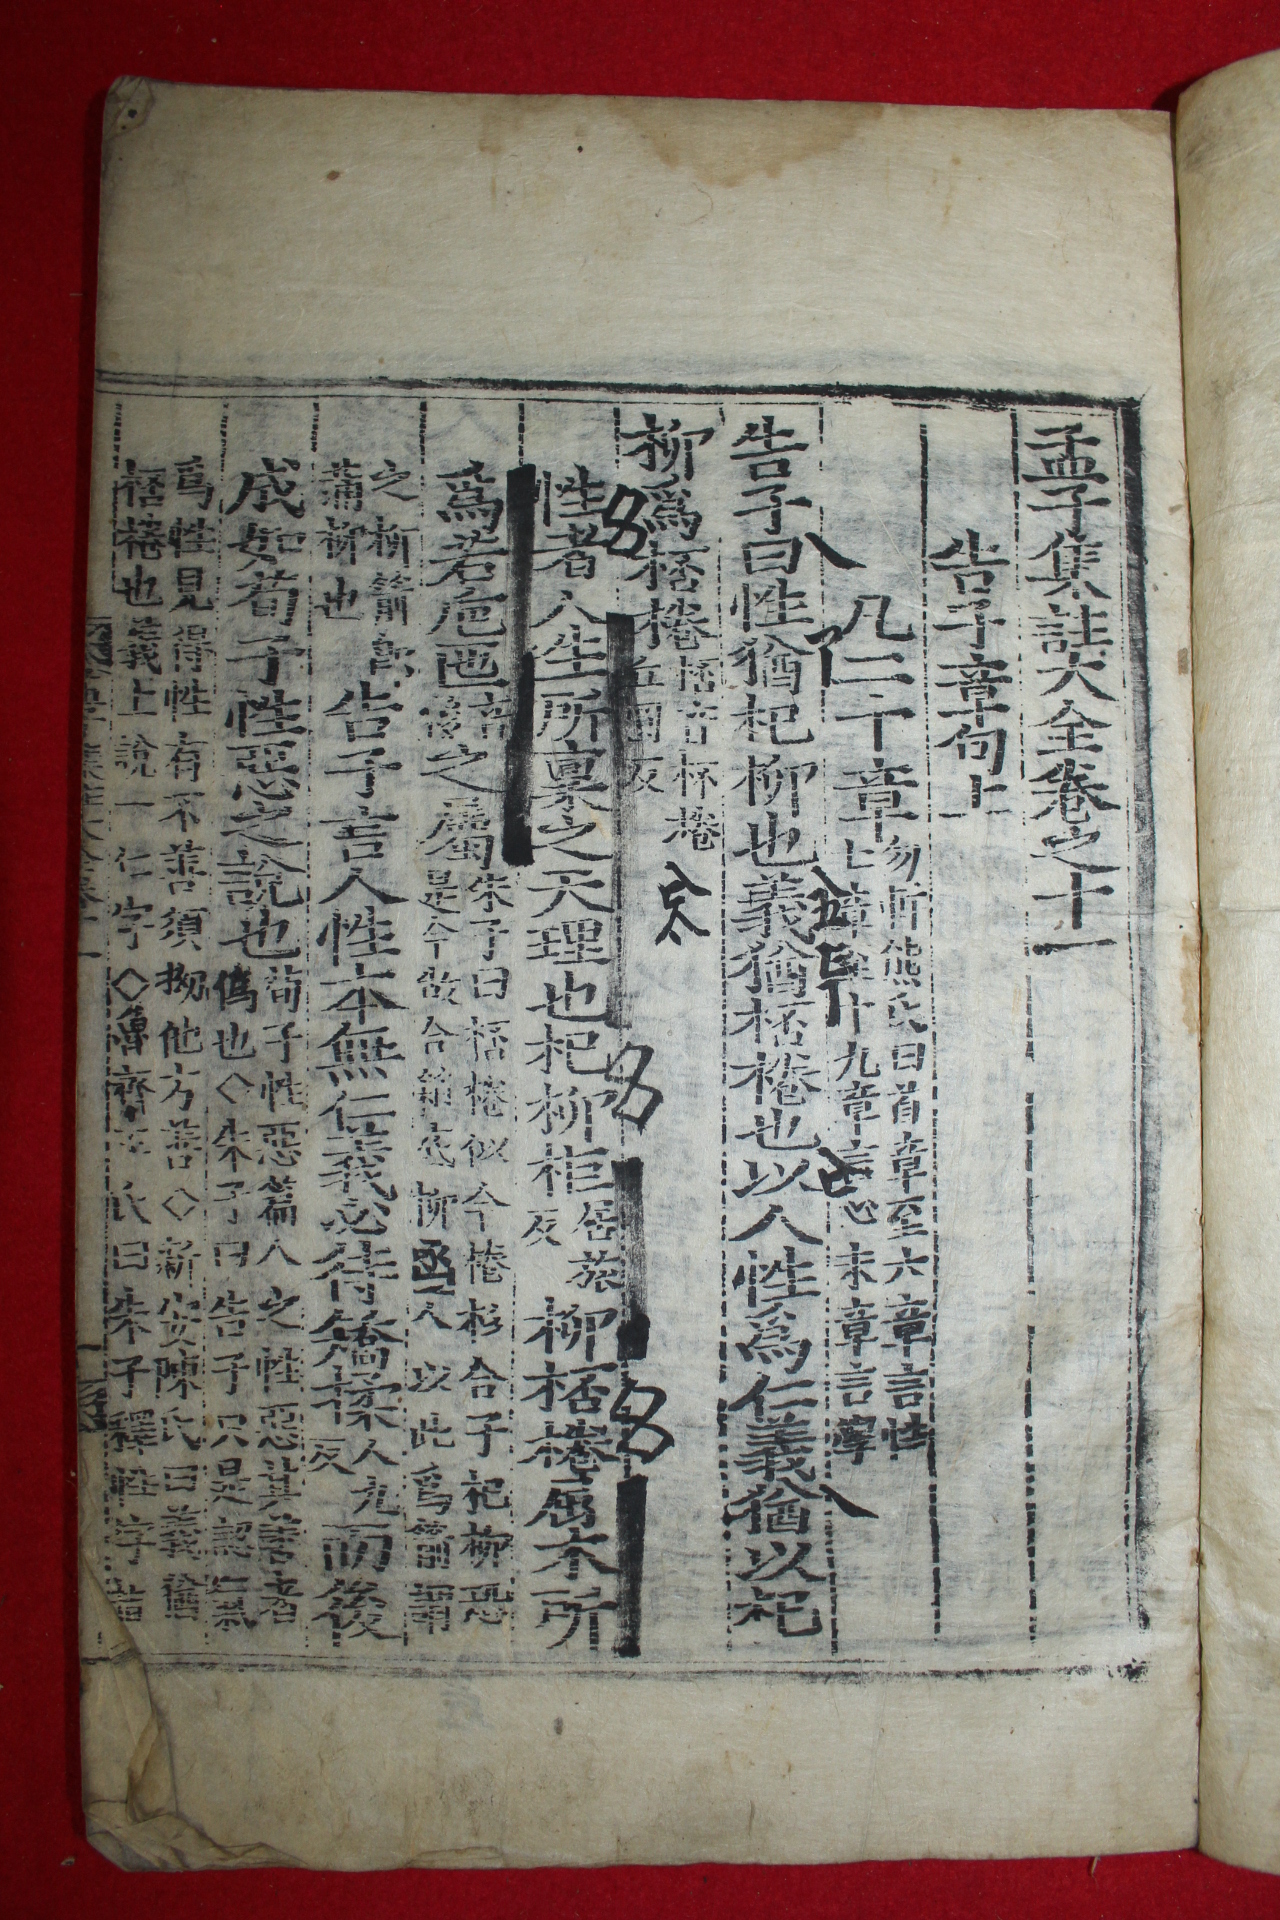 孟子集註大全卷之十一
告子章句上
凡二十章
勿軒熊氏曰首章至六章言性
七章至十九章言心末章言學
告子曰性猶杞柳也義猶桮棬也以人性爲仁義猶以杞
柳爲桮棬
桮音杯棬
丘圓反
性者人生所稟之天理也杞柳柜
居旅
反
柳桮棬屈木所
爲若卮匜
音
之屬
朱子曰桮棬似今棬杉合子杞柳恐
是今做合箱底柳
人以此爲箭謂
之柳箭卽
蒲柳也
告子言人性本無仁義必待矯揉
人九
反
而後
成如荀子性惡之說也
荀子性惡篇人之性惡其善者
僞也◇朱子曰告子只是認氣
爲性見得性有不善須拗他方善◇新安陳氏曰義猶
桮棬也義上說一仁字◇魯齊王氏曰朱子釋性字指